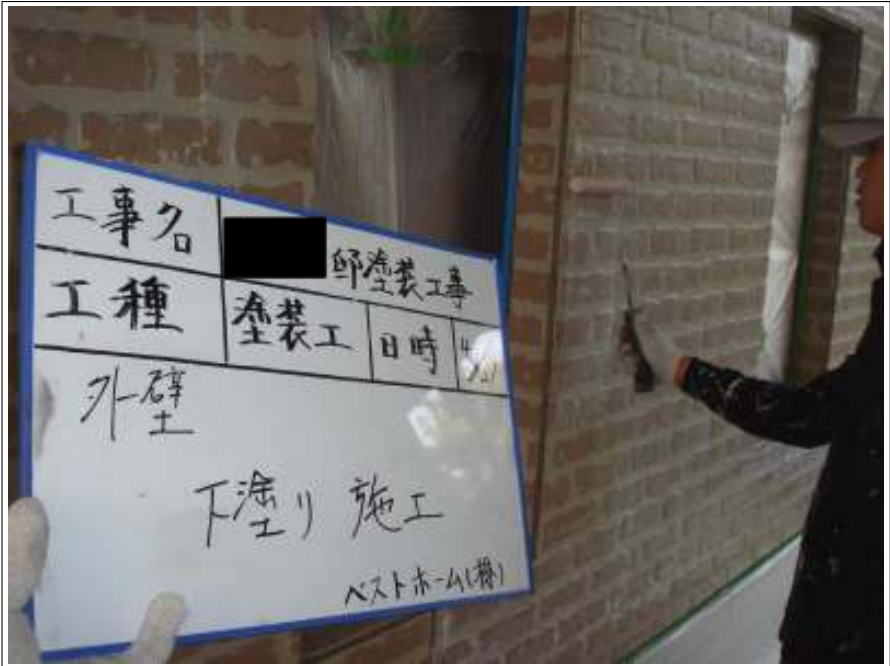 工事名
邸塗装工事
工種
塗装工
日時
外壁
下塗り 施工
ベストホーム(株)